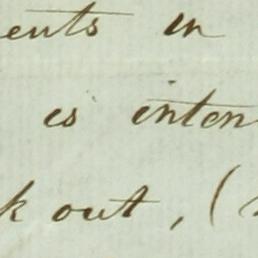 ents in
is inten
k out, (